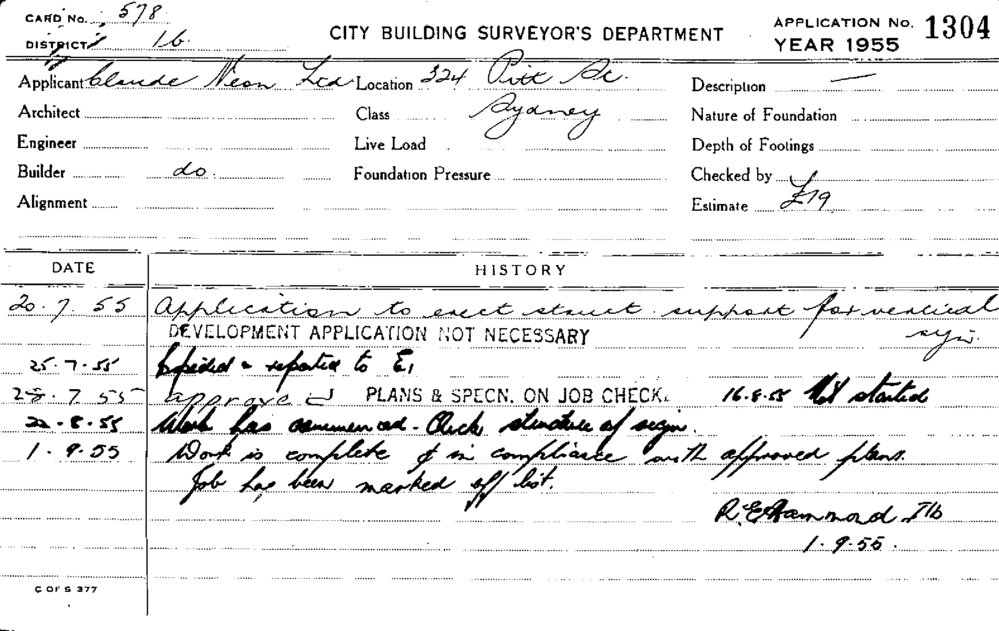 CARD No. 578
DISTRICT 16
CITY BUILDING SURVEYOR'S DEPARTMENT
APPLICATION No. 1304
YEAR 1955
Applicant Claude Neon Ltd Location 324 Pitt St. Description —
Architect Class Sydney Nature of Foundation
Engineer Live Load Depth of Footings
Builder do. Foundation Pressure Checked by
Alignment Estimate £19
DATE HISTORY
20.7.55 Application to erect struct. support for vertical
sign.
DEVELOPMENT APPLICATION NOT NECESSARY
25.7.55 & reported to E1
28.7.55 approved PLANS & SPECN. ON JOB CHECK. 16.8.55 Not started
22.8.55 Work has commenced - Check structure of sign.
1.9.55 Work is complete & in compliance with approved plans.
Job has been marked off list.
R.E. Hammond I16
1.9.55.
C OF S 377